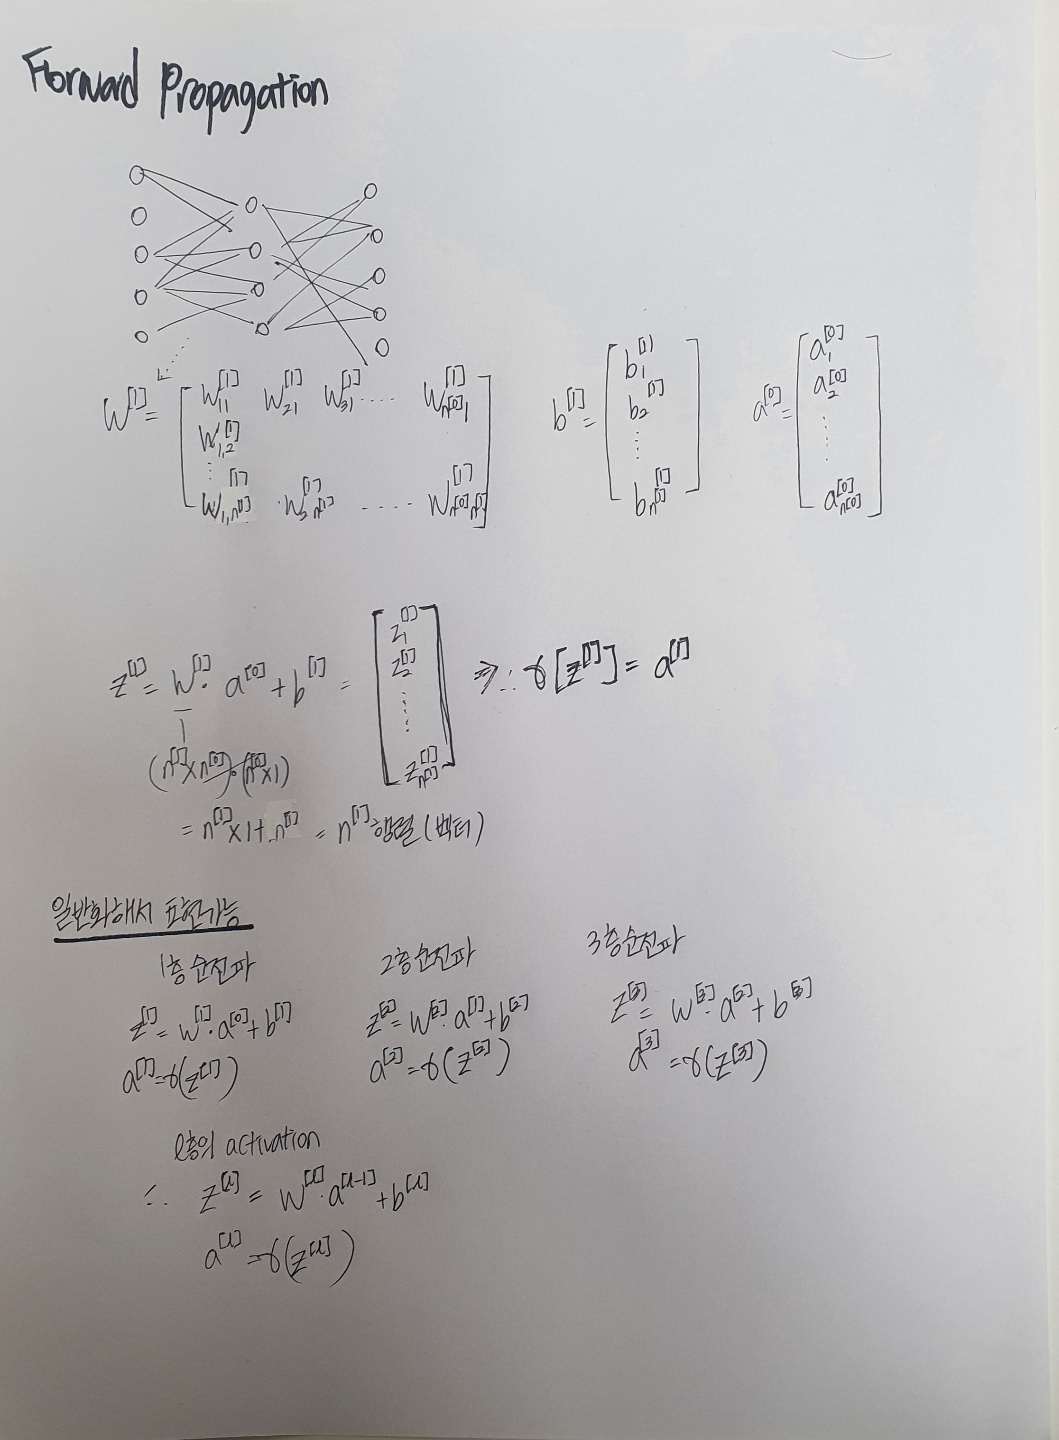 Forward Propagation
W^[1] = [ W_11^[1] W_21^[1] W_31^[1] .... W_n^[0]1^[1]
W_1,2^[1]
⋮
W_1,n^[1]^[1] W_2n^[1]^[1] .... W_n^[0]n^[1]^[1] ]
b^[1] = [ b_1^[1]
b_2^[1]
⋮
b_n^[1]^[1] ]
a^[0] = [ a_1^[0]
a_2^[0]
⋮
a_n^[0]^[0] ]
z^[1] = W^[1] · a^[0] + b^[1] = [ z_1^[1] z_2^[1] ⋮ z_n^[1]^[1] ] ⇒ ∴ σ[z^[1]] = a^[1]
(n^[1]×n^[0])·(n^[0]×1)
= n^[1]×1 + n^[1] = n^[1] 행렬(벡터)
일반화해서 표현가능
1층 순전파
z^[1] = W^[1]·a^[0] + b^[1]
a^[1] = σ(z^[1])
2층 순전파
z^[2] = W^[2]·a^[1] + b^[2]
a^[2] = σ(z^[2])
3층 순전파
z^[3] = W^[3]·a^[2] + b^[3]
a^[3] = σ(z^[3])
l층의 activation
∴ z^[l] = W^[l]·a^[l-1] + b^[l]
a^[l] = σ(z^[l])